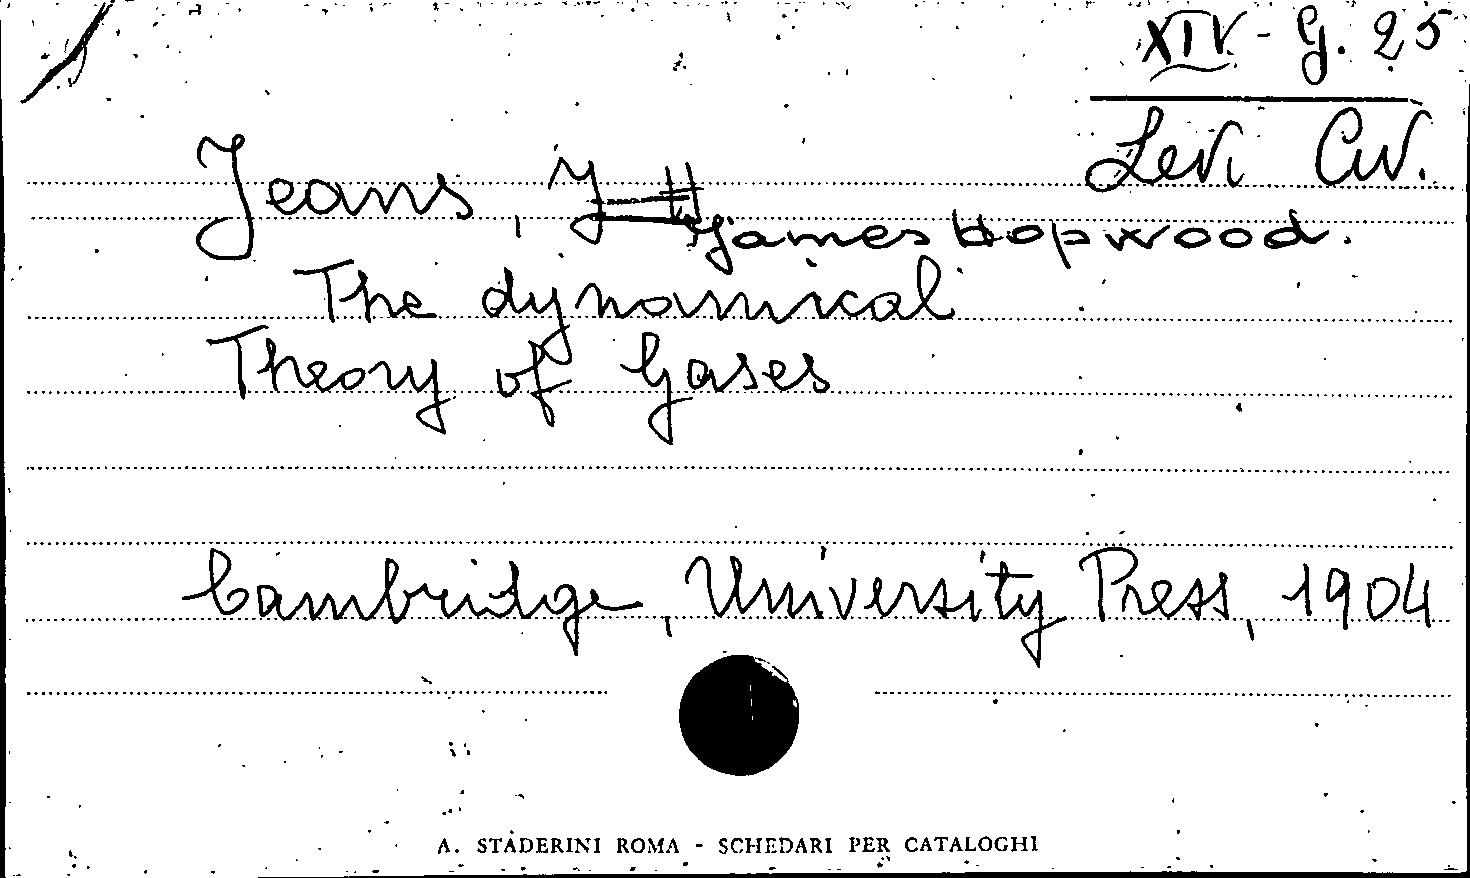 XIV - G. 25
Levi Civ.
Jeans, J. H.
James Hopwood.
The dynamical
Theory of Gases
Cambridge, University Press, 1904
A. STADERINI ROMA - SCHEDARI PER CATALOGHI